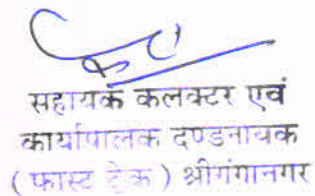 सहायक कलक्टर एवं
कार्यापालक दण्डनायक
( फास्ट ट्रेक ) श्रीगंगानगर